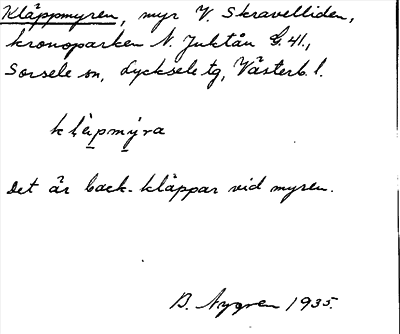 Kläppmyren, myr V. Skravelliden,
kronoparken N. Juktån G. 41.,
Sorsele sn, Lycksele tg, Västerb. l.
kläpmýra
Det är back-kläppar vid myren.
B. Nygren 1935.